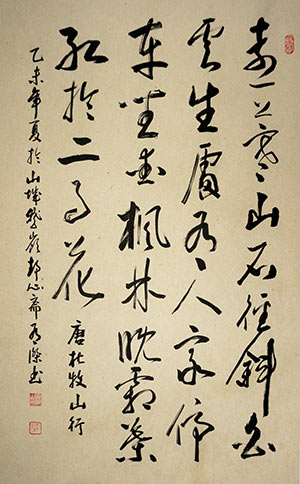 遠上寒山石徑斜白
雲生處有人家停
車坐愛楓林晚霜葉
紅於二月花
唐杜牧山行
乙未年夏於山城鵝嶺心齋書